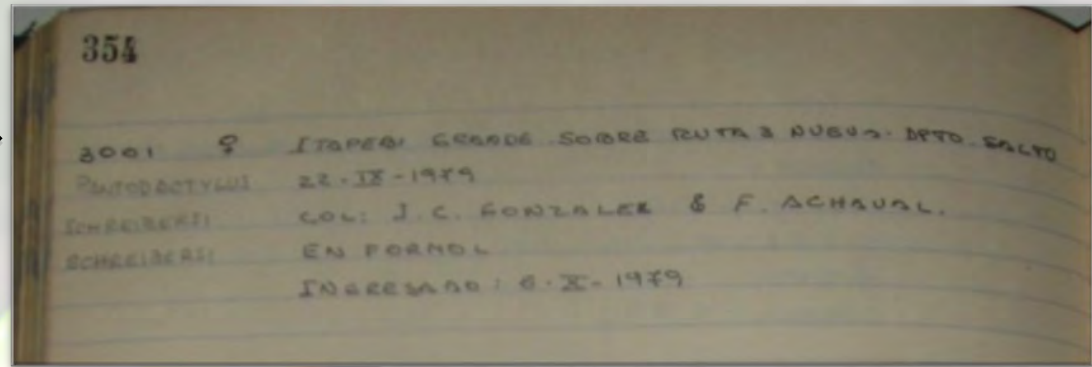 354
3001 ♀ ITAPEBI GRANDE SOBRE RUTA 3 NUEVA. DPTO. SALTO
PANTODACTYLUS 22-IX-1979
SCHREIBERSI COL: J.C. GONZALEZ & F. ACHAVAL.
SCHREIBERSI EN FORMOL
INGRESADO: 6-X-1979